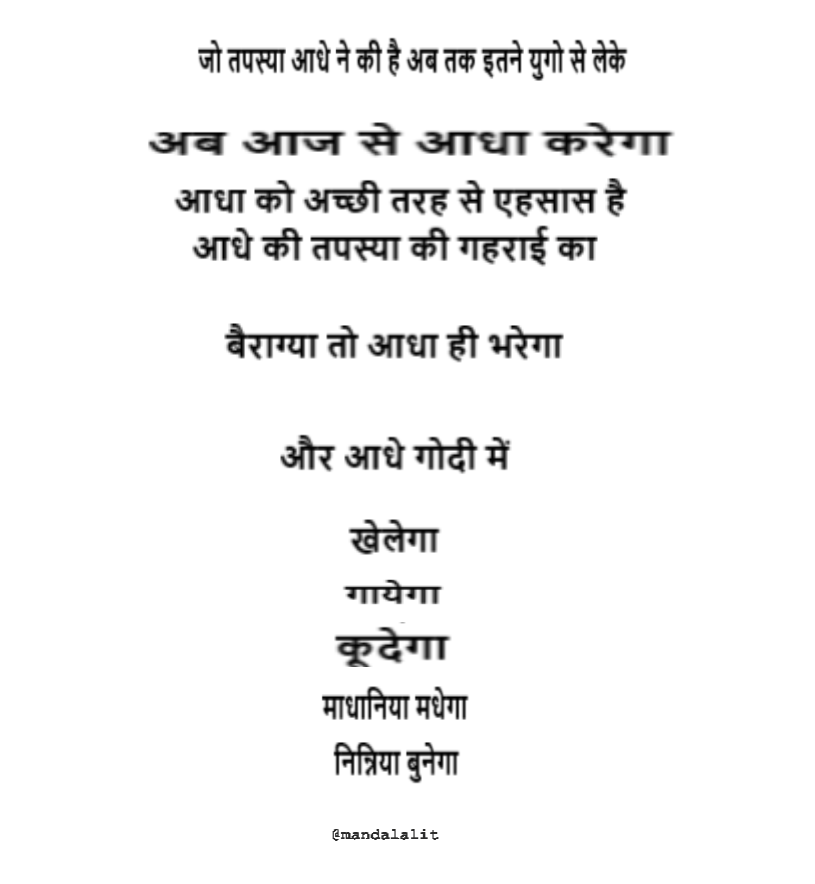 जो तपस्या आधे ने की है अब तक इतने युगो से लेके
अब आज से आधा करेगा
आधा को अच्छी तरह से एहसास है
आधे की तपस्या की गहराई का
बैराग्या तो आधा ही भरेगा
और आधे गोदी में
खेलेगा
गायेगा
कूदेगा
माधानिया मधेगा
निन्रिया बुनेगा
@mandalalit